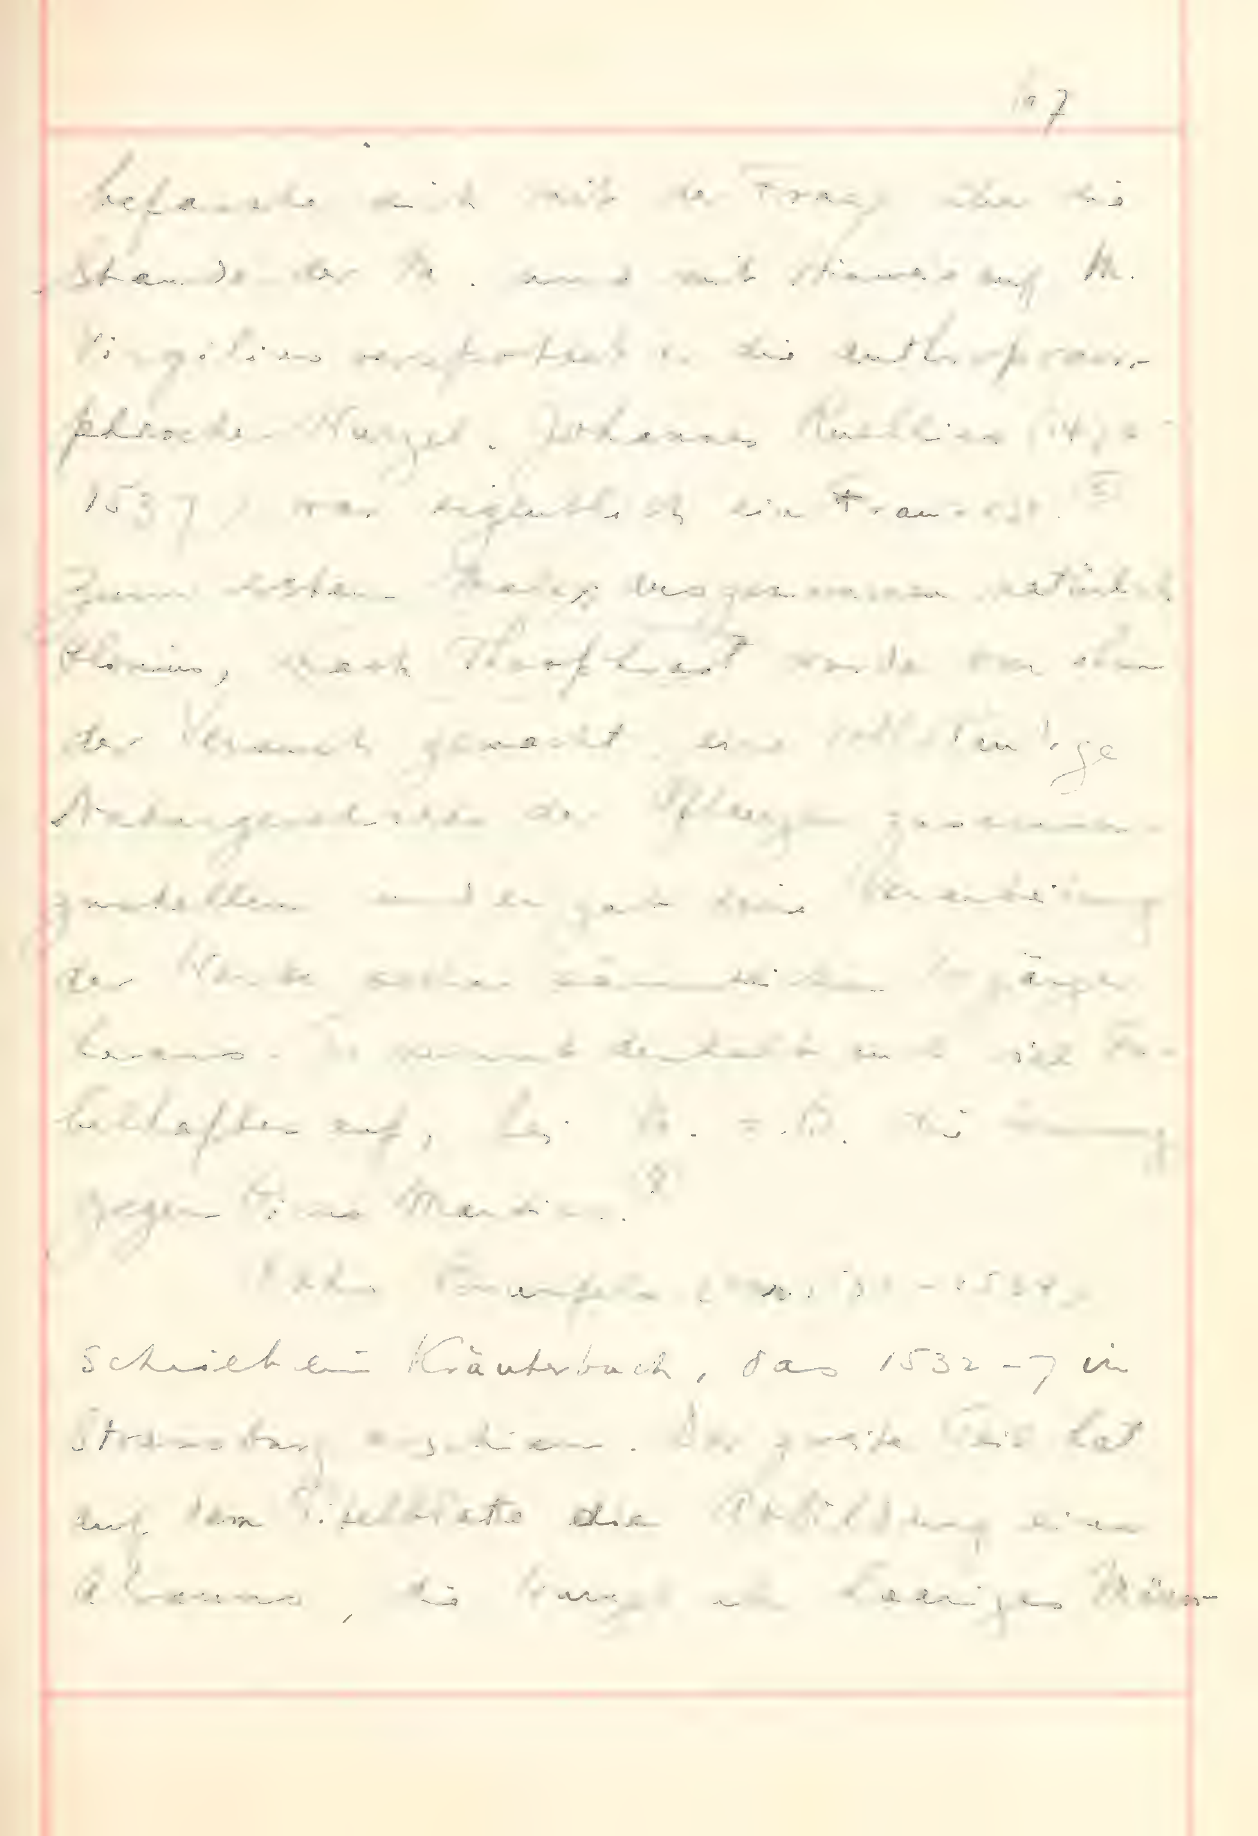 107
befasste sich mit der Frage über die
der M. und mit Hinweis auf M.
Virgilius verspottet er die anthropomor-
Wurzel. Johannes Ruellius (14
1537) war eigentlich ein Franzose.
Zum ersten Male, ausgenommen natürlich
Plinius, nach Theophrast wurde von ihm
der Versuch gemacht eine vollständige
Naturgeschichte der Pflanzen zusammen-
zustellen und er gab seine Bearbeitung
der Werke seiner sämmtlichen Vorgänger
heraus. Er nimmt deshalb auch viel Fa-
belhaftes auf, bei M. z.B. die
gegen
Otto Brunfels ( - 1534)
schrieb ein Kräuterbuch, das 1532-7 in
Strassburg erschien. Der zweite Teil hat
auf dem Titelblatte die Abbildung eines
Alrauns, die Wurzel als haariges Männ-